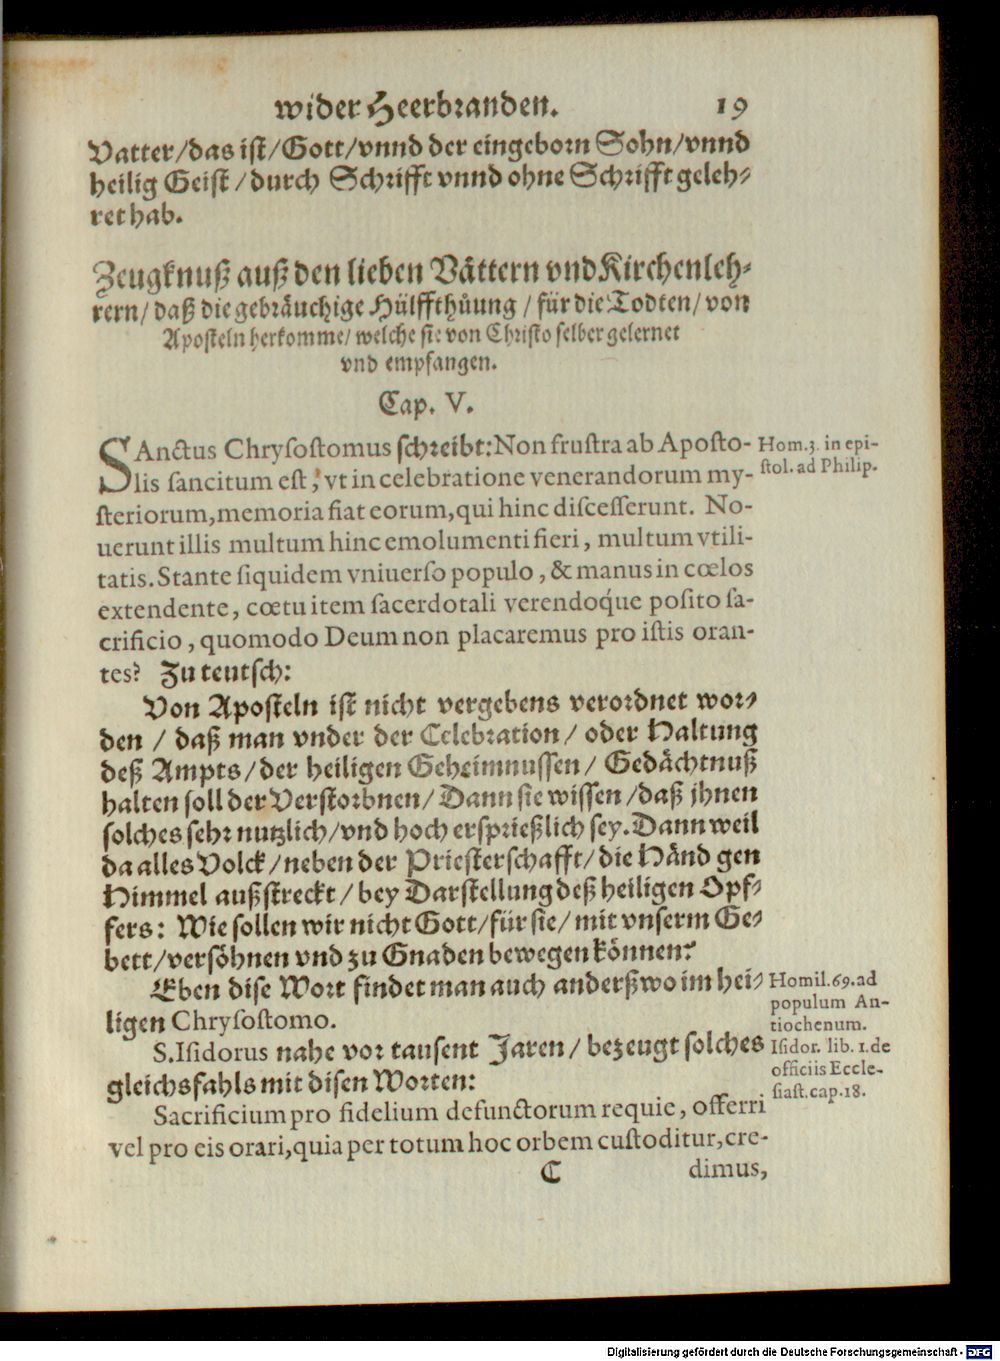 wider Heerbranden. 19
Vatter/das ist/Gott/vnnd der eingeborn Sohn/vnnd
heilig Geist/durch Schrifft vnnd ohne Schrifft geleh-
ret hab.
Zeugknuß auß den lieben Vättern vnd Kirchenleh-
rern/ daß die gebräuchige Hülffthůung / für die Todten/ von
Aposteln herkomme/ welche sie von Christo selber gelernet
vnd empfangen.
Cap. V.
SAnctus Chrysostomus schreibt: Non frustra ab Aposto-
lis sancitum est, vt in celebratione venerandorum my-
steriorum, memoria fiat eorum, qui hinc discesserunt. No-
uerunt illis multum hinc emolumenti fieri, multum vtili-
tatis. Stante siquidem vniuerso populo, & manus in cœlos
extendente, cœtu item sacerdotali verendoq́ue posito sa-
crificio, quomodo Deum non placaremus pro istis oran-
tes? Zu teutsch:
Hom. 3. in epi-
stol. ad Philip.
Von Aposteln ist nicht vergebens verordnet wor-
den / daß man vnder der Celebration/ oder Haltung
deß Ampts/der heiligen Geheimnussen/ Gedächtnuß
halten soll der Verstorbnen/ Dann sie wissen/daß jhnen
solches sehr nutzlich/vnd hoch ersprießlich sey. Dann weil
da alles Volck/neben der Priesterschafft/die Händ gen
Himmel außstreckt/bey Darstellung deß heiligen Opf-
fers: Wie sollen wir nicht Gott/für sie/mit vnserm Ge-
bett/versöhnen vnd zu Gnaden bewegen können?
Eben dise Wort findet man auch anderßwo im hei-
ligen Chrysostomo.
Homil. 69. ad
populum An-
tiochenum.
S. Isidorus nahe vor tausent Jaren/ bezeugt solches
gleichsfahls mit disen Worten:
Isidor. lib. 1. de
officiis Eccle-
siast. cap. 18.
Sacrificium pro fidelium defunctorum requie, offerri
vel pro eis orari, quia per totum hoc orbem custoditur, cre-
C dimus,
Digitalisierung gefördert durch die Deutsche Forschungsgemeinschaft - DFG